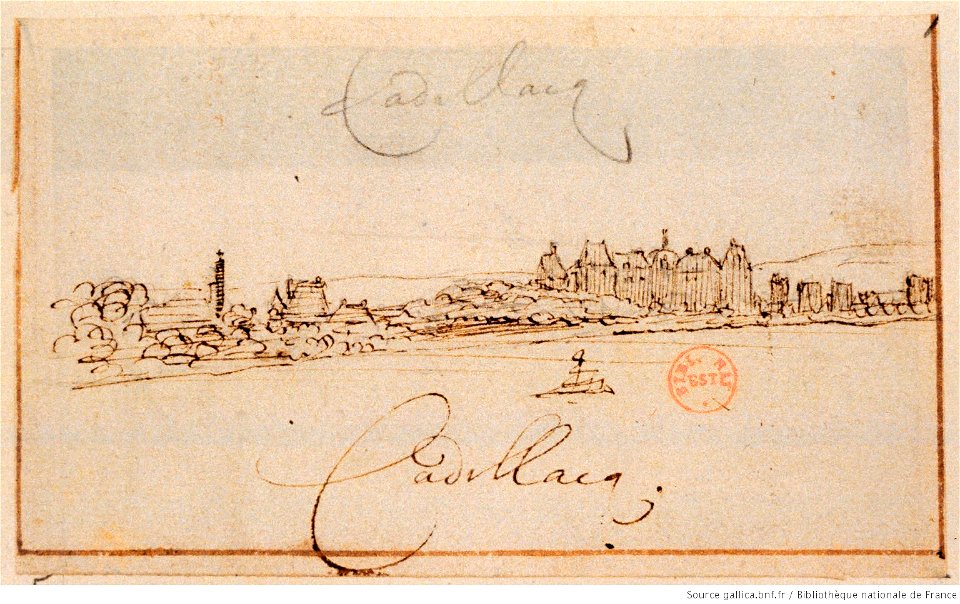 Cadillacq
BIBL. NAT.
EST.
Cadillacq.
Source gallica.bnf.fr / Bibliothèque nationale de France